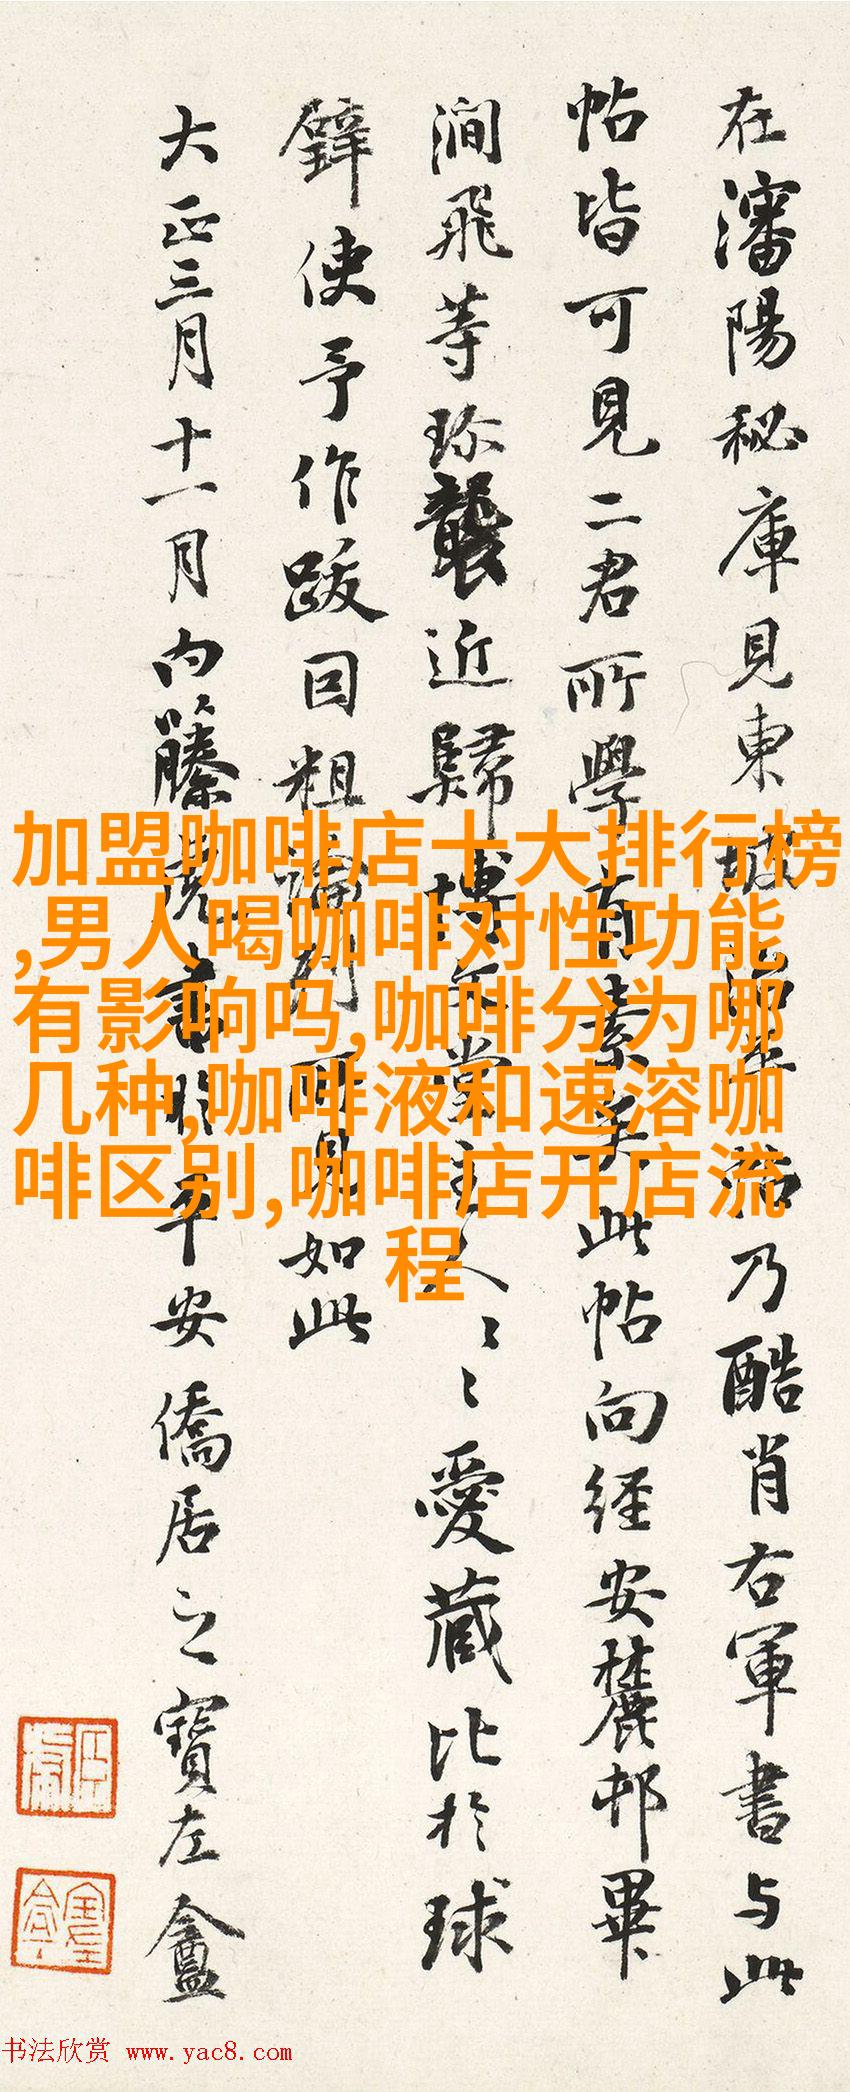 在瀋陽秘庫見東坡
乃酷肖右軍書与此
帖皆可見二君所學有素矣此帖向経安麓邨畢
澗飛等珎襲近歸博文堂主人〻〻愛蔵比於球
鐸使予作跋因粗論列所見如此
大正三月十一月内藤虎書於平安僑居之寶左盦
加盟咖啡店十大排行榜
,男人喝咖啡对性功能
有影响吗,咖啡分为哪
几种,咖啡液和速溶咖
啡区别,咖啡店开店流
程
书法欣赏 www.yac8.com